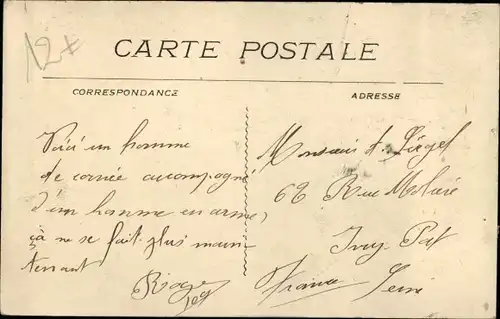 12+
CARTE POSTALE
CORRESPONDANCE
ADRESSE
Voici un homme
de corvée accompagné
d'un homme en arme,
ça ne se fait plus main
tenant
Roger
Monsieur A. Liégel
62 Rue Molière
Ivry Pst
France Seine